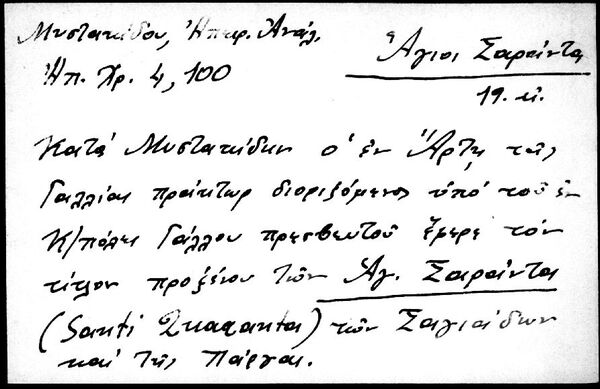 Μυστακίδου, Ἠπειρ. Ἀνάλ.
Ἠπ. Χρ. 4, 100
Ἅγιοι Σαράντα
19. αἰ.
Κατά Μυστακίδην ὁ ἐν Ἄρτῃ τῆς
Γαλλίας πράκτωρ διοριζόμενος ὑπό τοῦ ἐν
Κ/πόλει Γάλλου πρεσβευτοῦ ἔφερε τόν
τίτλον προξένου τῶν Ἁγ. Σαράντα
(Santi Quaranta) τῶν Σαγιάδων
καί τῆς Πάργας.